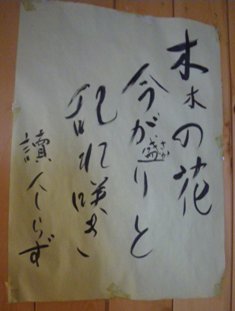 木木の花
今が盛りと
さか
乱れ咲き
讀人しらず